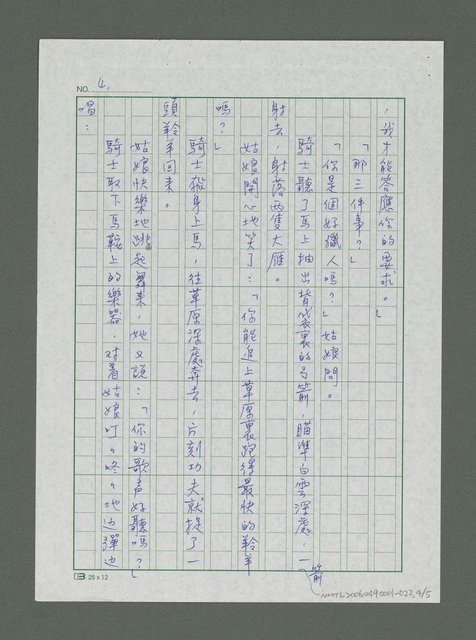 NO. 4.
，我才能答應你的要求。」
「那三件事？」
「你是個好獵人嗎？」姑娘問。
騎士聽了馬上抽出背袋裏的弓箭，瞄準白雲深處，一箭
射去，射落兩隻大雁。
姑娘開心地笑了：「你能追上草原裏跑得最快的羚羊
嗎？」
騎士縱身上馬，往草原深處奔去，片刻功夫就捉了一
頭羚羊回來。
姑娘快樂地跳起舞來，她又說：「你的歌声好聽嗎？」
騎士取下馬鞍上的樂器，对着姑娘叮々咚々地边彈边
唱：
25 x 12
NMTL20060490001-022,4/5